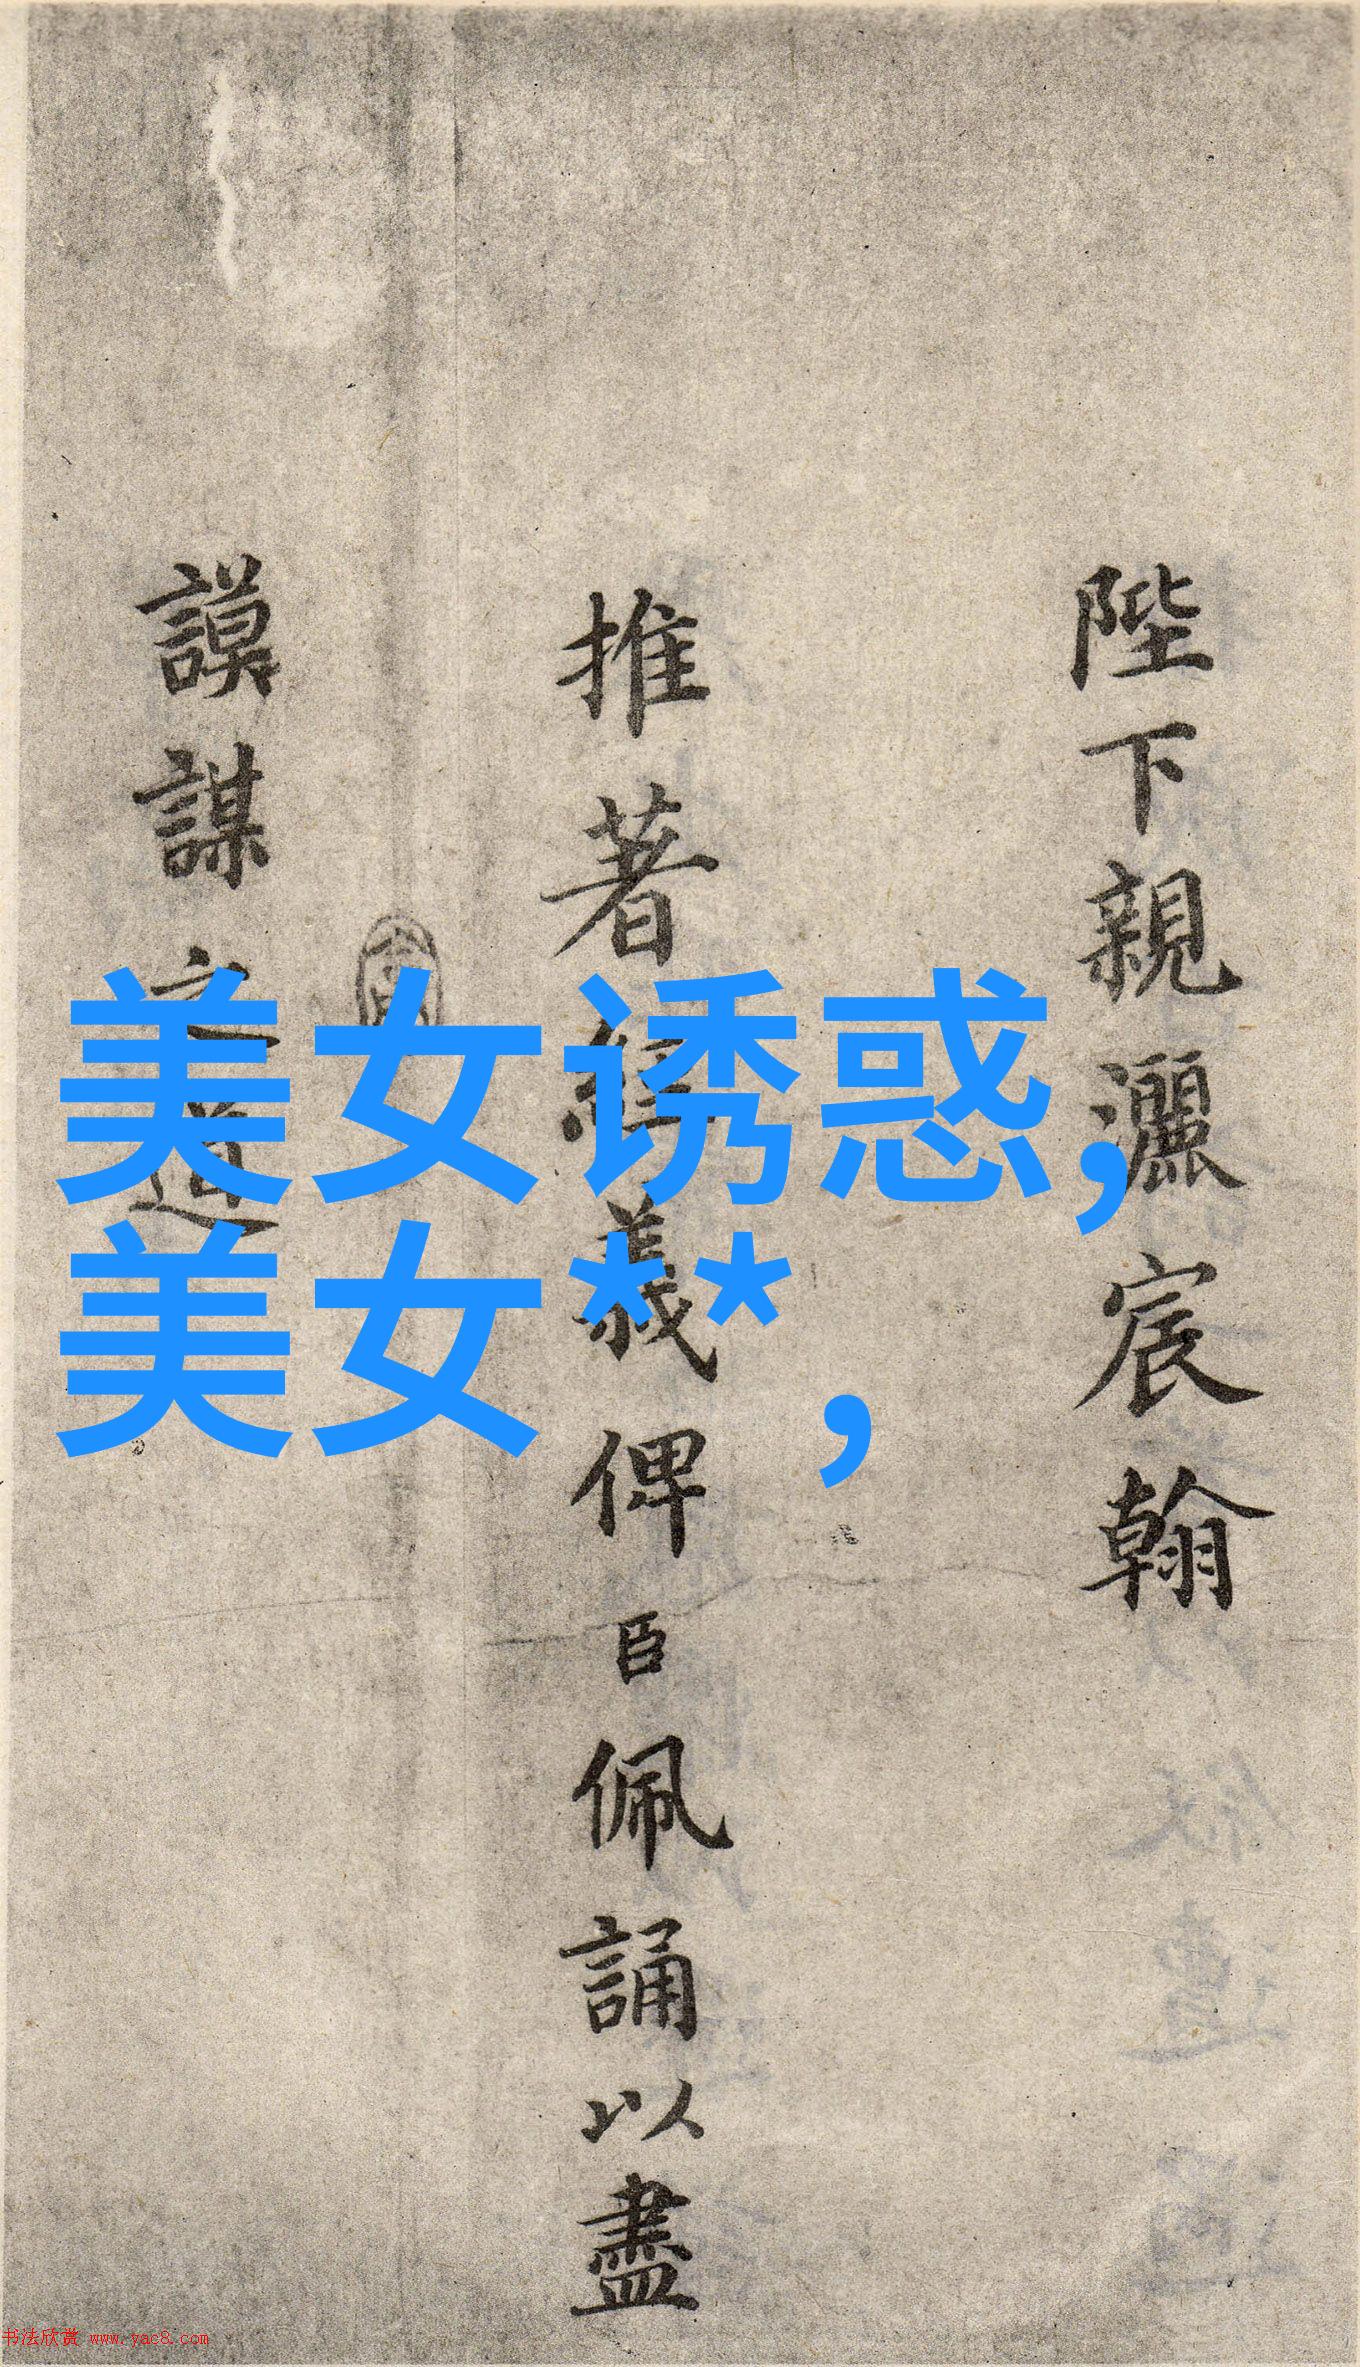 陛下親灑宸翰
推著經義俾臣佩誦以盡
謨謀之道
美女诱惑,
美女**,
书法欣赏 www.yac8.com